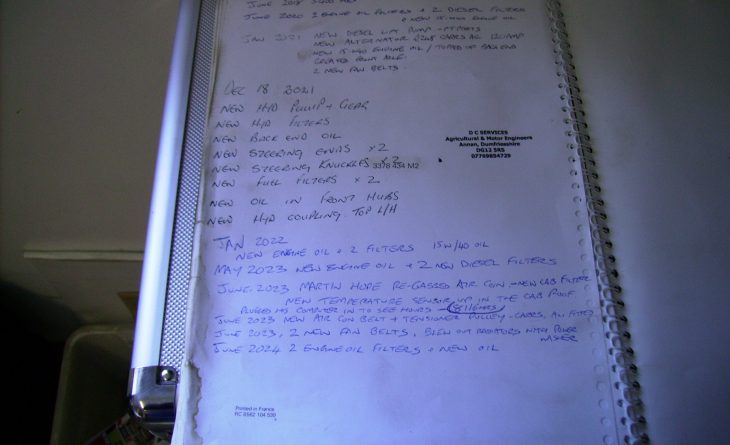 JUNE 2018
JUNE 2020 2 ENGINE OIL FILTERS + 2 DIESEL FILTERS
+ NEW 15W/40 ENGINE OIL
JAN 2021 NEW DIESEL LIFT PUMP
NEW ALTERNATOR
NEW 15W40 ENGINE OIL / TOPPED UP BACK END
GREASED FRONT AXLE.
2 NEW FAN BELTS.
DEC 18 2021
NEW HYD PUMP + GEAR
NEW HYD FILTERS
NEW BACK END OIL
NEW STEERING ENDS x2
NEW STEERING KNUCKLES x2 3378 454 M2
NEW FUEL FILTERS x 2
NEW OIL IN FRONT HUBS
NEW HYD COUPLING. TOP L/H
D C SERVICES
Agricultural & Motor Engineers
Annan, Dumfriesshire
DG12 5RS
07789894729
JAN 2022
NEW ENGINE OIL + 2 FILTERS 15W/40 OIL
MAY 2023 NEW ENGINE OIL + 2 NEW DIESEL FILTERS
JUNE. 2023 MARTIN HOPE RE-GASSED AIR CON - NEW CAB FILTER
NEW TEMPERATURE SENSOR UP IN THE CAB ROOF
PLUGGED HIS COMPUTER IN TO SEE HOURS
JUNE 2023 NEW AIR CON BELT + TENSIONER PULLEY - CABRS. ALL FITTED
JUNE 2023, 2 NEW FAN BELTS, BLEW OUT RADIATORS WITH POWER
WASHER
JUNE 2024 2 ENGINE OIL FILTERS + NEW OIL
Printed in France
RC 8562 104 530